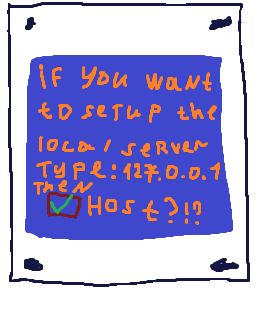 if you want
to setup the
local server
type: 127.0.0.1
then
Host?!?